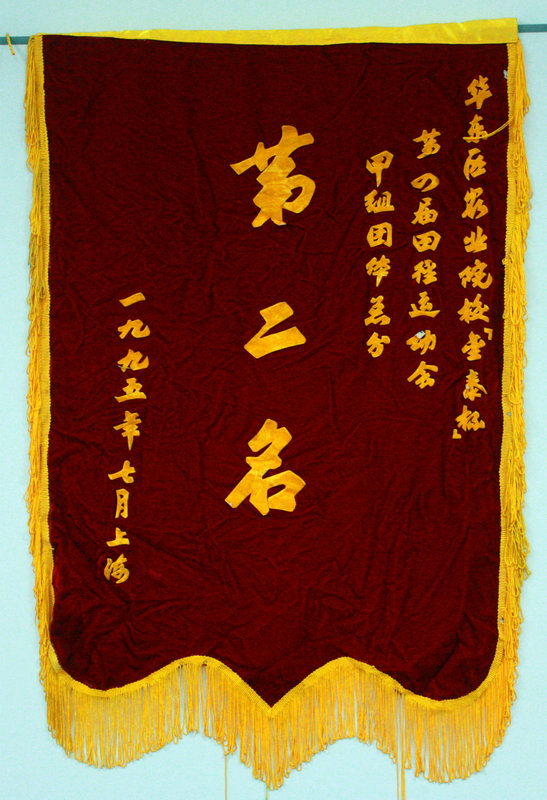 华东区农业院校『金泰杯』
第四届田径运动会
甲组团体总分
第二名
一九九五年七月上海